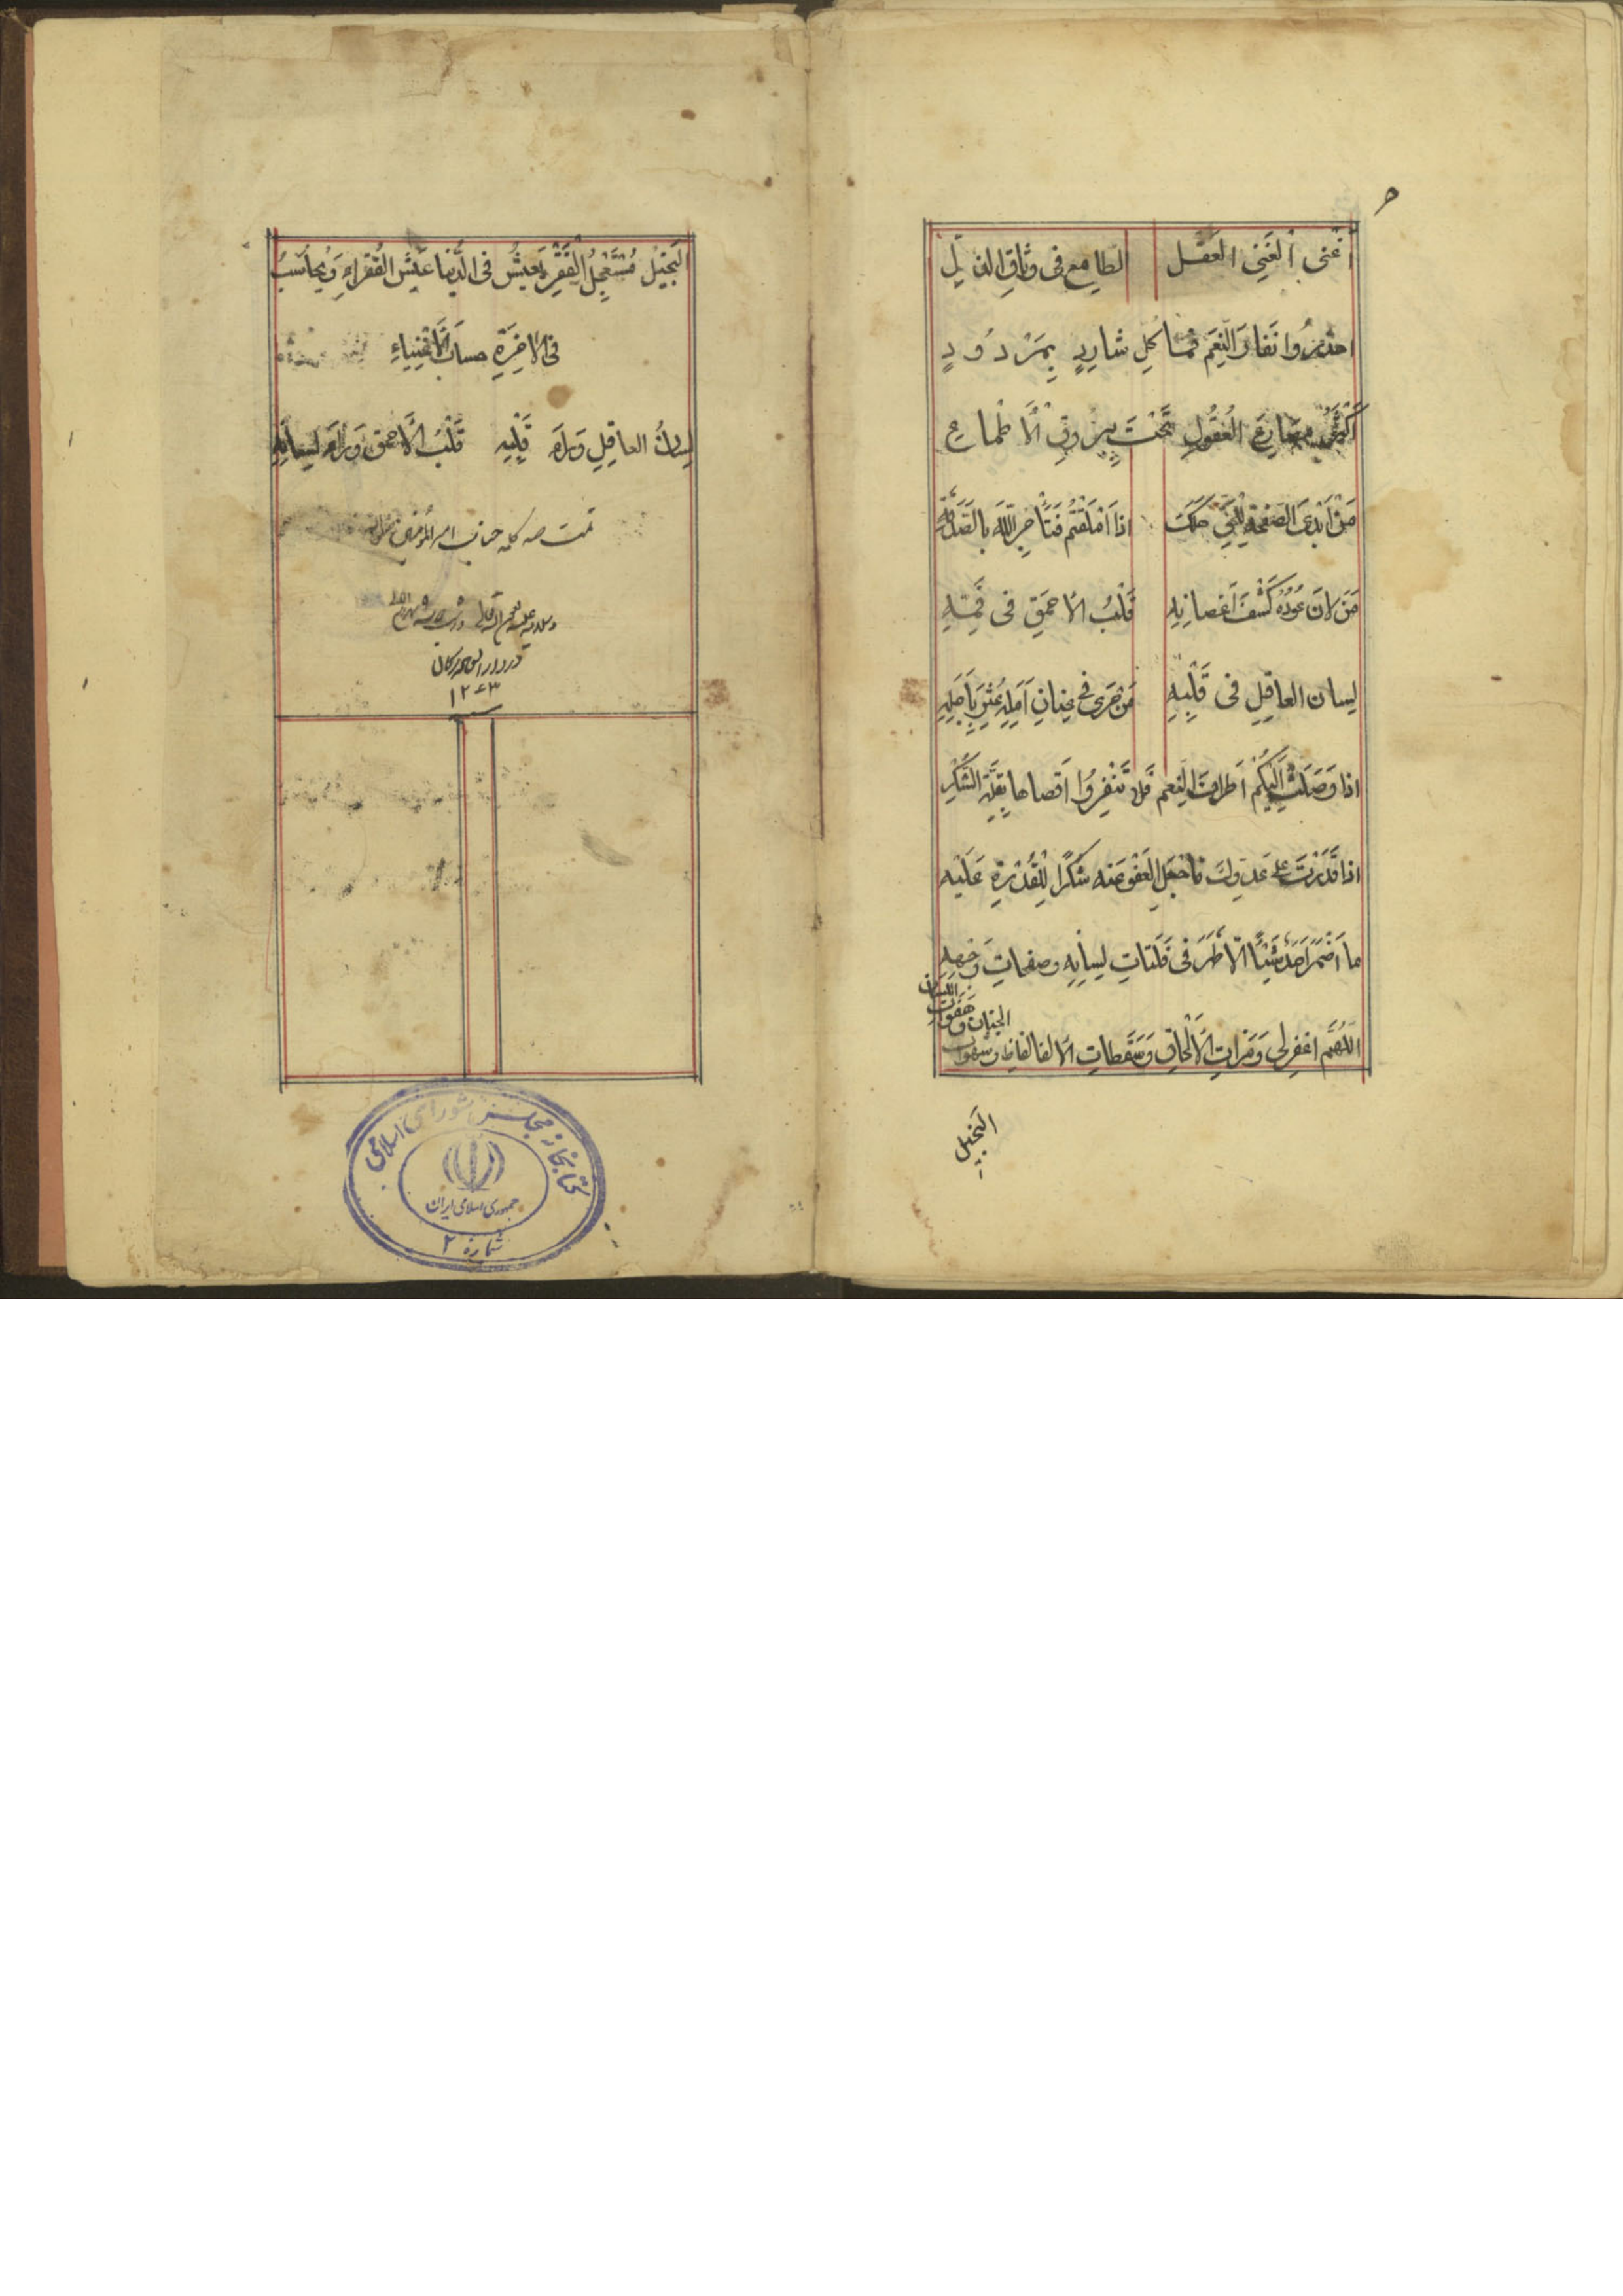 أَغْنَى الْغَنِى الْعَقْلُ الطامع فى وثاقِ الذلِّ
احذرُوا نَفارَ النِّعَمِ فما كُلِ شارِدٍ بِمَرْدُودٍ
أَكْثَرُ مصارعِ العُقُولِ تَحْتَ بروقِ الْأَطْماعِ
مَنْ اَبْدى الصَفحَة لِلحَقِّ هَلَكَ اذا اَمْلَقْتُم فَتاجِرِ اللّٰهَ بالصَّدَقَةِ
مَنْ لانَ عُودُهُ كَثُفَ اَغصانِهِ قَلْبُ الأحمَقِ فى فَمِهِ
لِسان العاقِلِ فى قَلْبِهِ مَن جَرى فى عِنانِ اَمَلِهِ عُثِرَ بِاَجَلِهِ
اذا وَصَلَتْ اِلَيْكُمْ اَطرافُ النِعَم فَلا تُنْفِرُوا اَقصاها بِقِلَّةِ الشُّكْرِ
اذا قَدَرْتَ على عَدوِّكَ فاجْعَلِ العَفْوَ عَنه شُكرًا لِلْقُدْرَةِ عَلَيْه
ما اَضْمَرَ اَحَدٌ شَيْئًا اِلّا ظَهَرَ فى فَلَتاتِ لِسانِهِ وصفحاتِ وَجْهِهِ
اللّٰهُمَّ اغفِر لى رَمَزاتِ الأَلْحاظِ وَسَقَطاتِ الألفاظِ وَسَهَواتِ
الجَنان و هَفَواتِ اللّسان
البَخيل
البَخيلُ مُسْتَعْجِلُ الْفَقْرِ يَعيشُ فى الدُّنيا عَيْشَ الفُقَراءِ وَيُحاسَبُ
فى الاخِرَةِ حسابَ الأَغْنِياءِ
لِسانُ العاقِلِ وَراءَ قَلْبِهِ قَلْبُ الأحمَقِ وَراءَ لِسانِهِ
تمت صد كلمه جناب امير المؤمنين
۱۲۴۳
كتابخانه مجلس شوراى اسلامى
جمهورى اسلامى ايران
شماره ۲